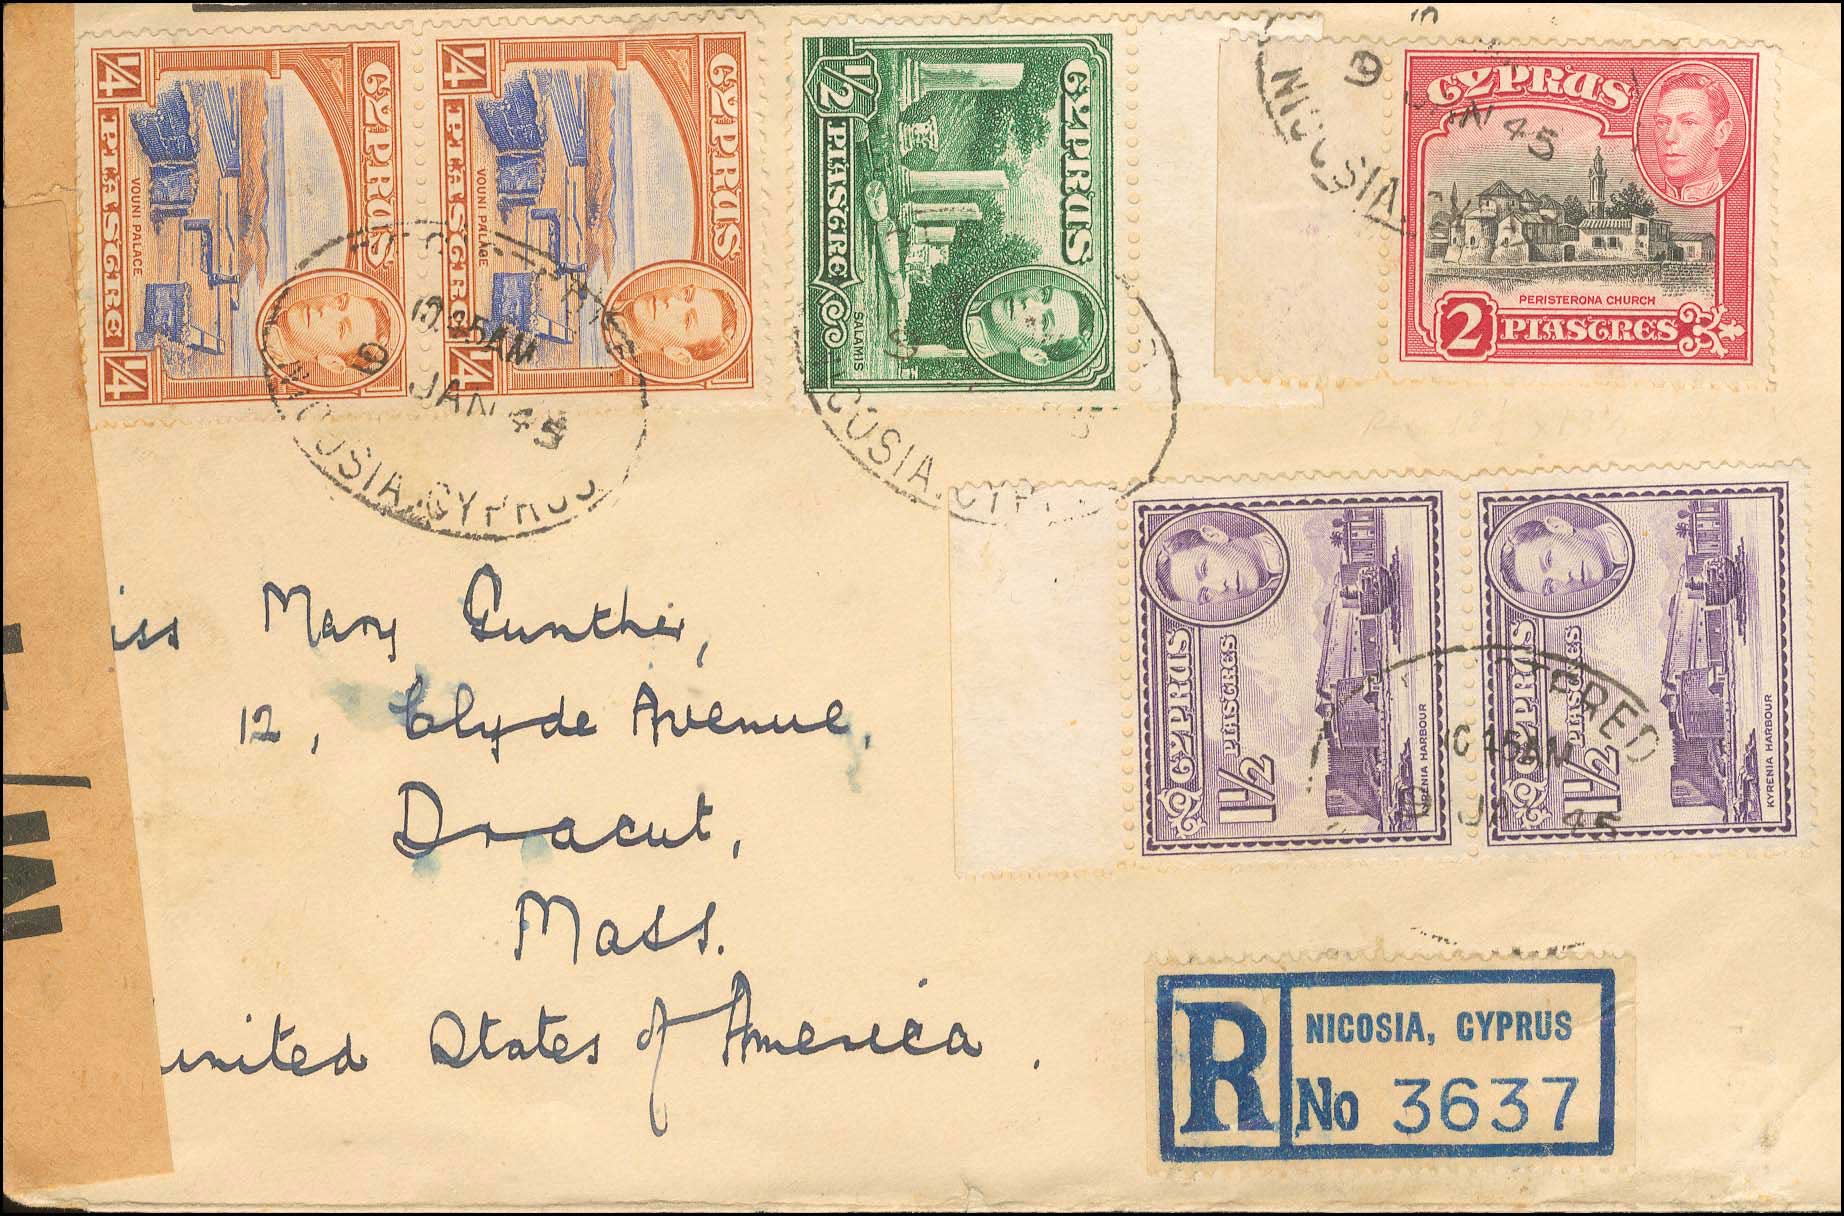 1/4 1/4
CYPRUS
PIASTRE
VOUNI PALACE
1/4
1/4 1/4
CYPRUS
PIASTRE
VOUNI PALACE
1/4
1/2 PIASTRE
CYPRUS
SALAMIS
CYPRUS
PERISTERONA CHURCH
2 PIASTRES
9 JAN 45
NICOSIA
10.45AM
9 JAN 45
NICOSIA. CYPRUS
9
COSIA. CYP
CYPRUS
1 1/2 PIASTRES
KYRENIA HARBOUR
CYPRUS
1 1/2 PIASTRES
KYRENIA HARBOUR
10 45AM
JA 45
iss Mary Gunther,
12, Clyde Avenue,
Dracut,
Mass.
united States of America.
R
NICOSIA, CYPRUS
No 3637